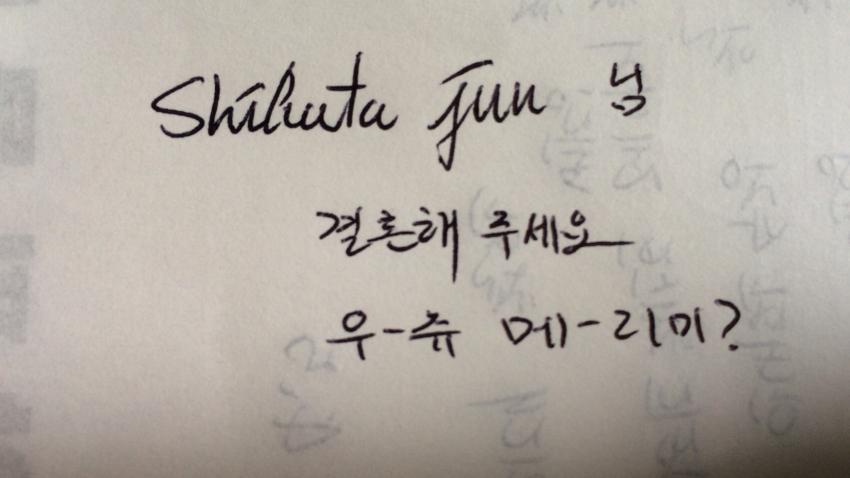 Shikata jun 님
결혼해 주세요
우-쥬 메-리미?